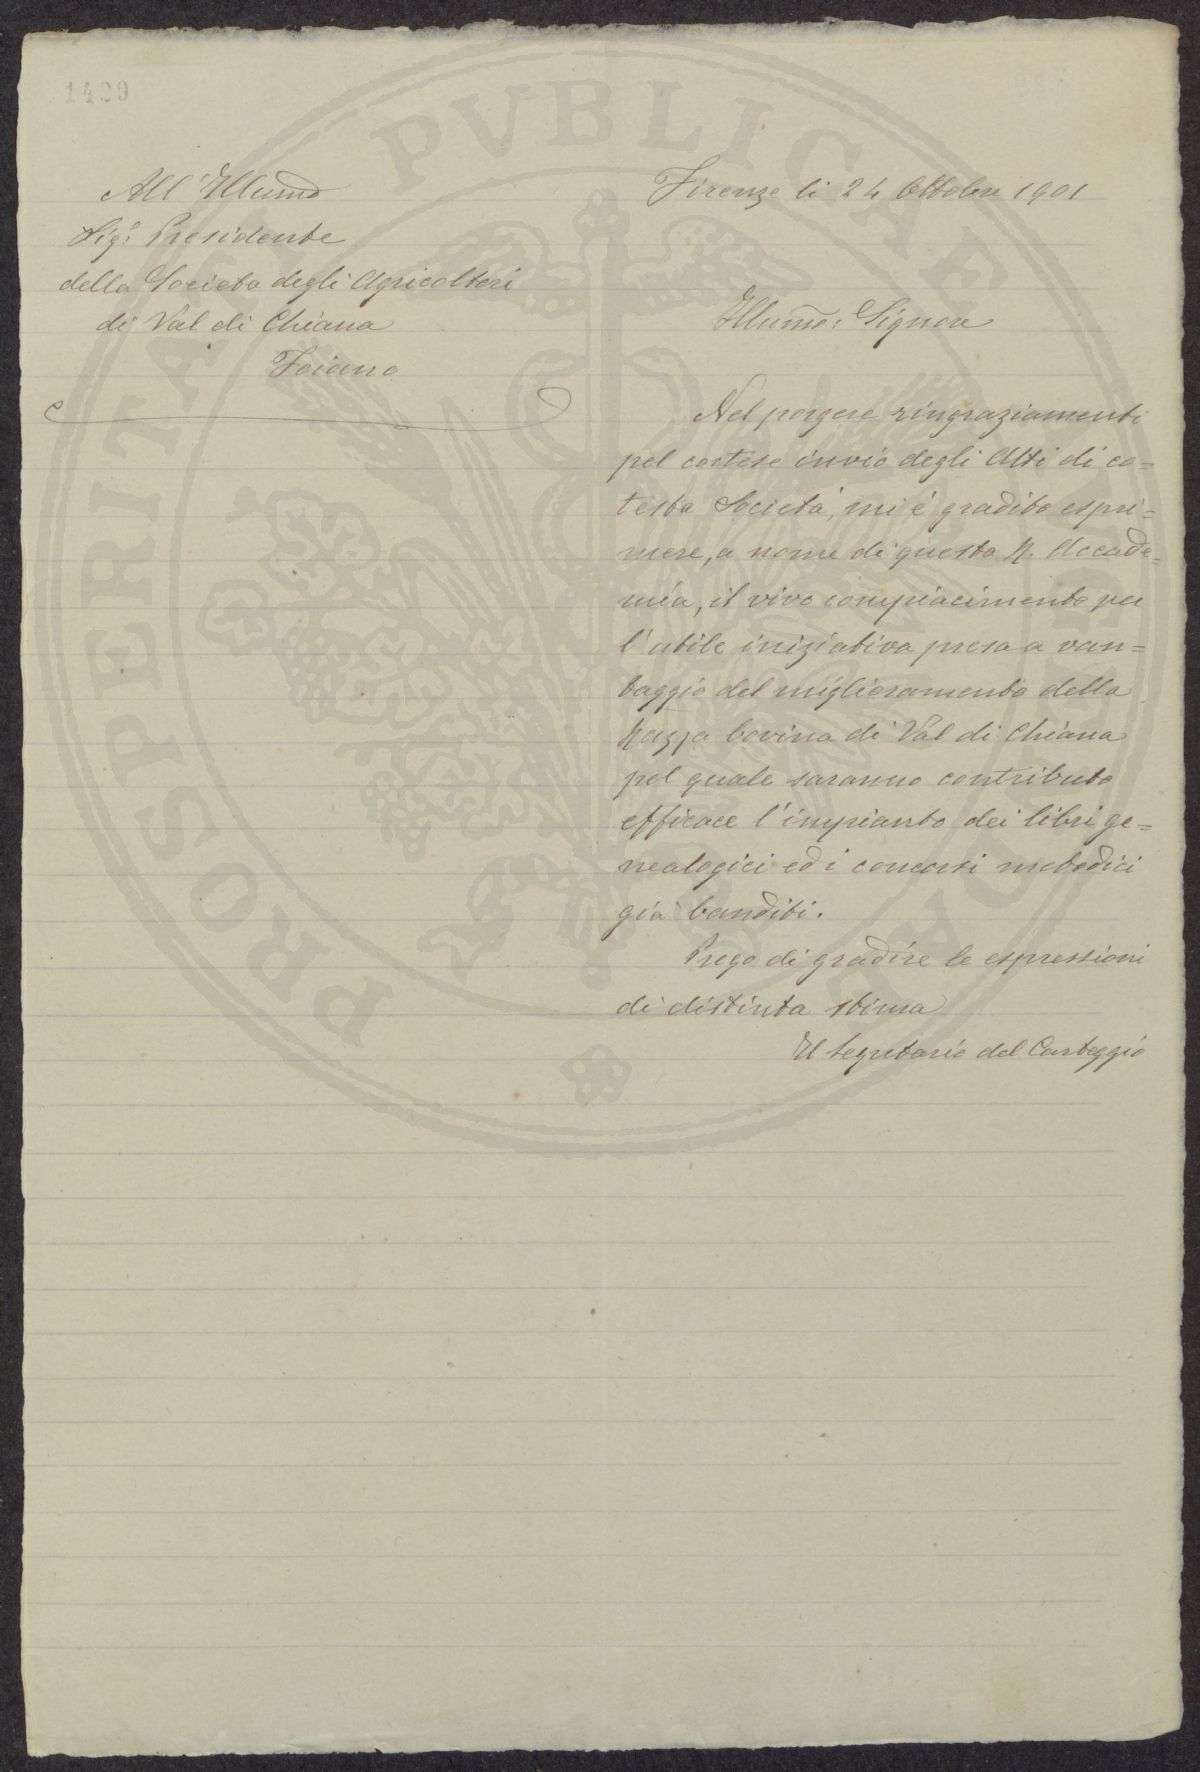 1429
All' Illumo
Sigr Presidente
della Società degli Agricoltori
di Val di Chiana
Foiano
Firenze li 24 Ottobre 1901
Illumo: Signore
Nel porgere ringraziamenti
pel cortese invio degli Atti di co=
testa Società, mi é gradito espri=
mere, a nome di questa R. Accade=
mia, il vivo compiacimento per
l'utile iniziativa presa a van=
taggio del miglioramento della
Razza bovina di Val di Chiana
pel quale saranno contributo
efficace l'impianto dei libri ge=
nealogici ed i concorsi metodici
già banditi.
Prego di gradire le espressioni
di distinta stima
Il Segretario del Carteggio
PROSPERITATI PVBLICAE